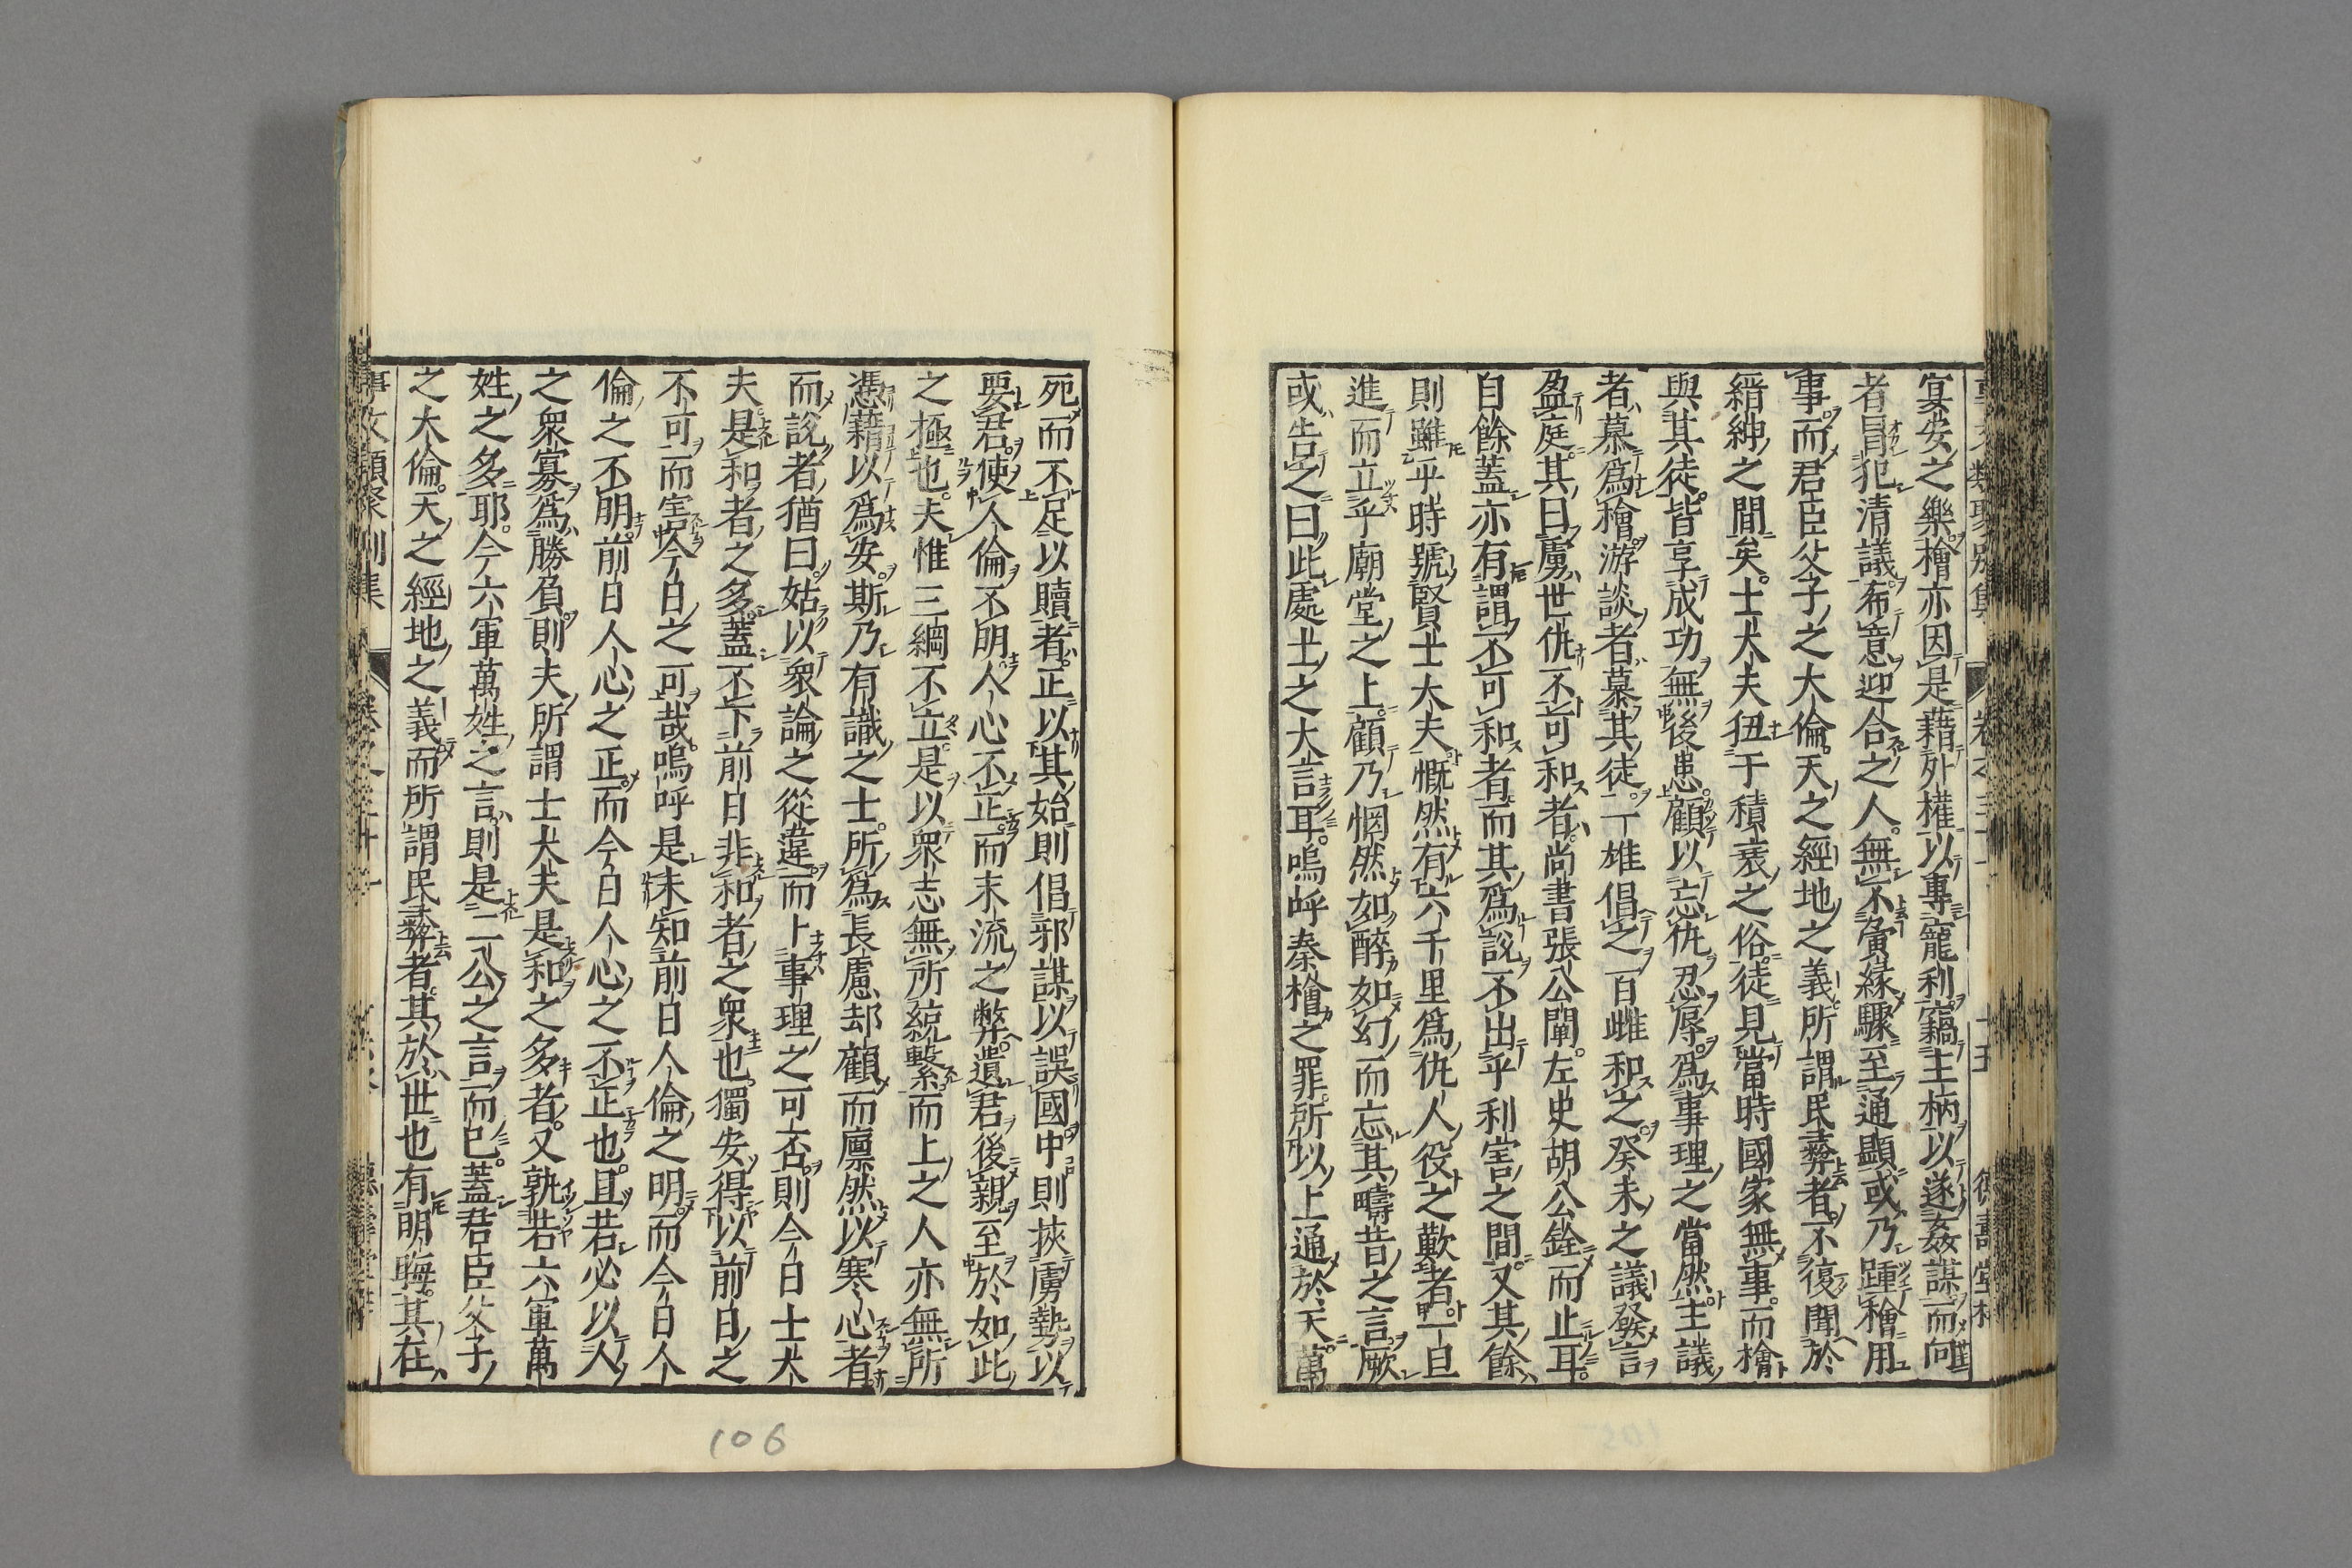 宴安之樂檜亦因是藉外權以專寵利竊主柄以遂姦謀而向
者冒犯清議布意迎合之人無不夤緣驟至通顯或乃踵檜用
事而君臣父子之大倫天之經地之義所謂民彝者不復聞於
縉紳之間矣士大夫狃于積衰之俗徒見當時國家無事而檜
與其徒皆享成功無後患顧以忘仇忍辱為事理之當然主議
者慕爲檜游談者慕其徒一雄倡之百雌和之癸未之議發言
盈庭其曰虜世仇不可和者尚書張公闡左史胡公銓而止耳
自餘蓋亦有謂不可和者而其爲說不出乎利害之間又其餘
則雖平時號賢士大夫慨然有六千里爲仇人役之歎者一旦
進而立乎廟堂之上顧乃惘然如醉如幻而忘其疇昔之言厥
或告之曰此處士之大言耳嗚呼秦檜之罪所以上通於天萬
死而不足以贖者正以其始則倡邪謀以誤國中則挾虜勢以
要君使人倫不明人心不正而末流之弊遺君後親至於如此
之極也夫惟三綱不立是以衆志無所統繫而上之人亦無所
憑藉以爲安斯乃有識之士所爲長慮却顧而凜然以寒心者
而說者猶曰姑以衆論之從違而卜事理之可否則今日士大
夫是和者之多蓋不下前日非和者之衆也獨安得以前日之
不可而害今日之可哉嗚呼是未知前日人倫之明而今日人
倫之不明前日人心之正而今日人心之不正也且若必以人
之衆寡爲勝負則夫所謂士大夫是和之多者又孰若六軍萬
姓之多耶今六軍萬姓之言則是二公之言而已蓋君臣父子
之大倫天之經地之義而所謂民彝者其於世也有明晦其在
106